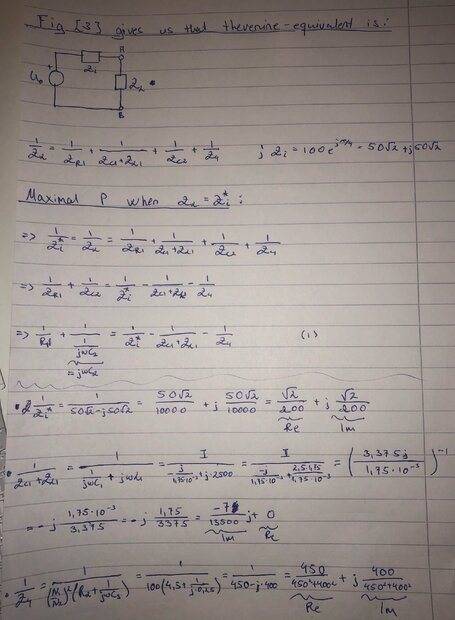 Fig [3] gives us that thevenine-equivalent is:
U₀ + Zi A Zx B
1/Zx = 1/ZR1 + 1/(ZC1+ZL1) + 1/ZC2 + 1/Z4 ; Zi = 100e^(jπ/4) = 50√2 + j50√2
Maximal P when Zx = Zi* :
=> 1/Zi* = 1/Zx = 1/ZR1 + 1/(ZC1+ZL1) + 1/ZC2 + 1/Z4
=> 1/ZR1 + 1/ZC2 = 1/Zi* - 1/(ZC1+ZL1) - 1/Z4
=> 1/R1 + 1/(1/jωC2) = 1/Zi* - 1/(ZC1+ZL1) - 1/Z4 (1)
= jωC2
• 1/Zi* = 1/(50√2-j50√2) = 50√2/10000 + j 50√2/10000 = √2/200 + j √2/200
Re Im
• 1/(ZC1+ZL1) = 1/(1/jωC1 + jωL1) = 1/(-j/1,75·10⁻³ + j·2500) = 1/(-j/1,75·10⁻³ + 2,5·1,75/1,75·10⁻³) = (3,375j/1,75·10⁻³)⁻¹
= -j 1,75·10⁻³/3,375 = -j 1,75/3375 = -7/13500 j + 0
Im Re
• 1/Z4 = 1/((N1/N2)²(R2+1/jωC3)) = 1/(100(4,5+1/(j·0,25))) = 1/(450-j·400) = 450/(450²+400²) + j 400/(450²+400²)
Re Im